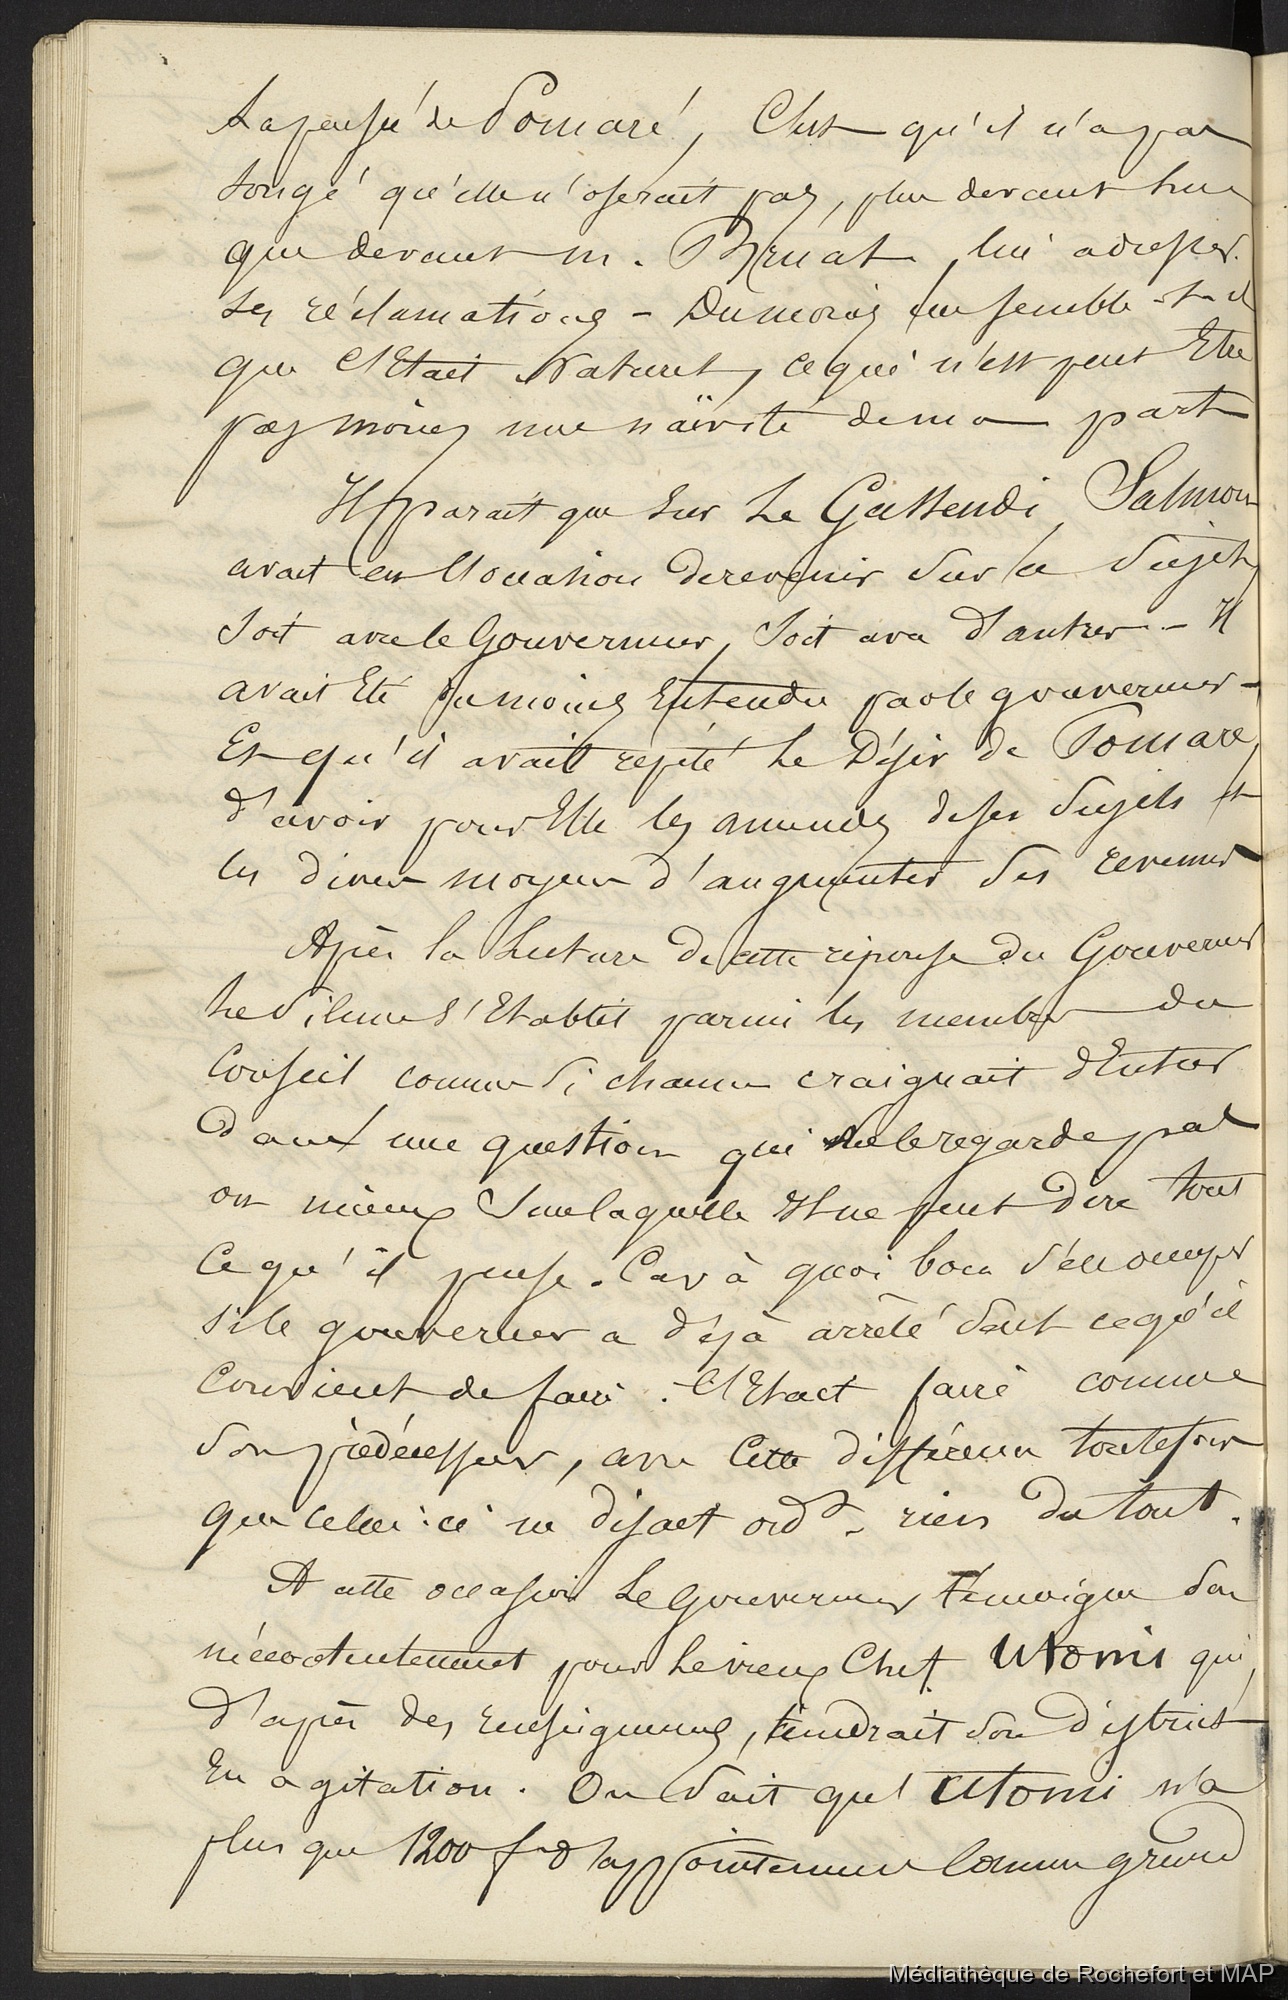 La pensée de Pomaré, C'est qu'il n'a pas
songé qu'elle n'oserait pas, plus devant lui
que devant m. Bruat, lui adresser
ses réclamations - Du moins me semble-t-il
que C'Etait Naturel, ce qui n'est peut Etre
pas moins une naïveté de ma part
Il parait que sur Le Gassendi, Salmon
avait eu l'occasion de revenir sur ce Sujet,
Soit avec le Gouverneur, Soit avec d'autres - Il
avait Eté du moins Entendu par le gouverneur -
Et qu'il avait repété Le Désir de Pomare,
d'avoir pour Elle les amendes de ses Sujets et
les divers moyens d'augmenter Ses revenus
Après la Lecture de cette réponse du Gouverneur
Le Silence S'Etablit parmi les membres du
Conseil comme Si chacun craignait d'Entrer
Dans une question qui ne le regarde pas
ou mieux Sur laquelle Il ne peut dire tout
Ce qu'il pense. Car à quoi bon s'en occuper
si le gouverneur a déjà arrêté Seul ce qu'il
Convient de faire. C'Etait faire comme
Son prédécesseur, avec Cette différence toutefois
que celui-ci ne disait ordre rien Du tout.
A cette occasion Le Gouverneur témoigne Son
mécontentement pour Le vieux Chef Utomi qui,
D'après des renseignemens, tiendrait Son District
En agitation. On Sait qu' Utomi n'a
plus que 1200 f d'appointemens Comme grand